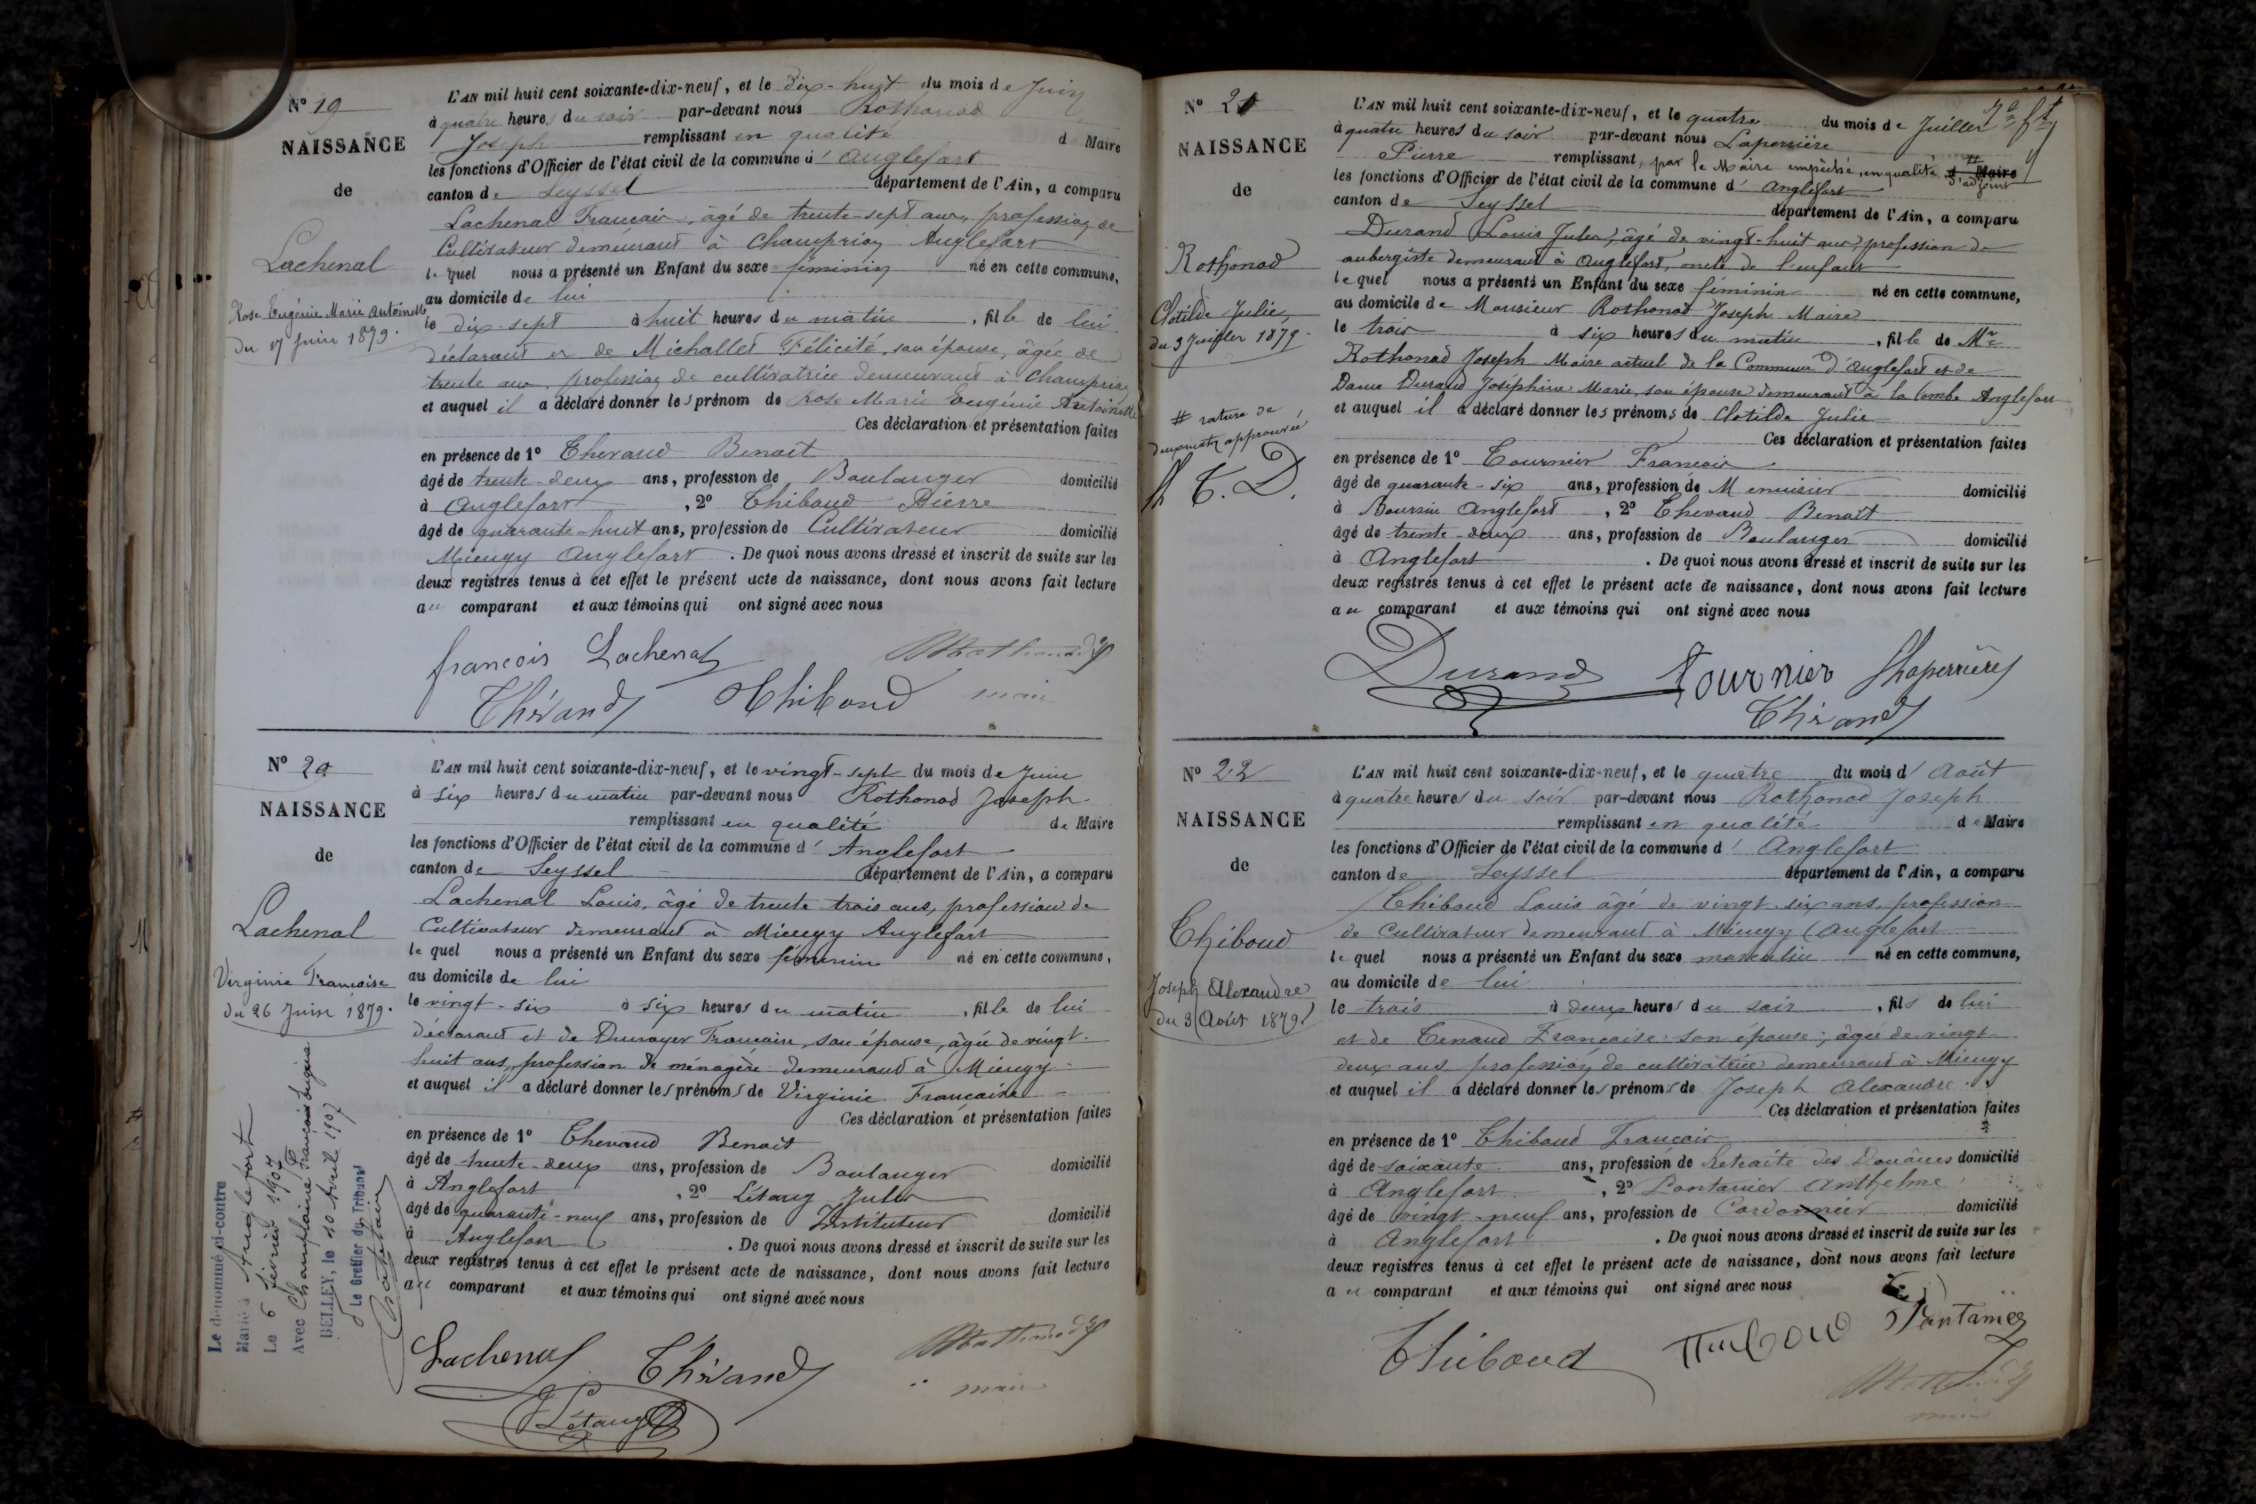 N° 19
NAISSANCE
de
Lachenal
Rose Eugénie Marie Antoinette
du 17 Juin 1879.
L'AN mil huit cent soixante-dix-neuf, et le dix-huit du mois de Juin
à quatre heures du soir par-devant nous Rothonod
Joseph remplissant en qualité de Maire
les fonctions d'Officier de l'état civil de la commune d'Anglefort
canton de Seyssel département de l'Ain, a comparu
Lachenal Francois, âgé de trente-sept ans, profession de
Cultivateur demeurant à Champrion Anglefort
lequel nous a présenté un Enfant du sexe féminin né en cette commune,
au domicile de lui
le dix-sept à huit heures du matin, fille de lui
déclarant et de Michallet Félicité, son épouse, âgée de
trente ans, profession de cultivatrice demeurant à Champrion
et auquel il a déclaré donner les prénom de Rose Marie Eugénie Antoinette
Ces déclaration et présentation faites
en présence de 1° Thevand Benoit
âgé de trente-deux ans, profession de Boulanger domicilié
à Anglefort, 2° Thiboud Pierre
âgé de quarante-huit ans, profession de Cultivateur domicilié
Mieugy Anglefort. De quoi nous avons dressé et inscrit de suite sur les
deux registres tenus à cet effet le présent acte de naissance, dont nous avons fait lecture
au comparant et aux témoins qui ont signé avec nous
francois Lachenal Rothonod
Thévand Thiboud maire
N° 20
NAISSANCE
de
Lachenal
Virginie Francoise
du 26 Juin 1879.
Le dénommé ci-contre
Marié à Anglefort
Le 6 février 1907
Avec Champlaine François Eugène
BELLEY, le 10 Avril 1907
Le Greffier du Tribunal
L'AN mil huit cent soixante-dix-neuf, et le vingt-sept du mois de Juin
à six heures du matin par-devant nous Rothonod Joseph
remplissant en qualité de Maire
les fonctions d'Officier de l'état civil de la commune d'Anglefort
canton de Seyssel département de l'Ain, a comparu
Lachenal Louis, âgé de trente trois ans, profession de
Cultivateur demeurant à Mieugy Anglefort
lequel nous a présenté un Enfant du sexe féminin né en cette commune,
au domicile de lui
le vingt-six à six heures du matin, fille de lui
déclarant et de Francoise, son épouse, âgée de vingt-
huit ans, profession de ménagère demeurant à Mieugy
et auquel il a déclaré donner les prénoms de Virginie Francoise
Ces déclaration et présentation faites
en présence de 1° Thevand Benoit
âgé de trente-deux ans, profession de Boulanger domicilié
à Anglefort, 2° Létang Jules
âgé de quarante-neuf ans, profession de Instituteur domicilié
à Anglefort. De quoi nous avons dressé et inscrit de suite sur les
deux registres tenus à cet effet le présent acte de naissance, dont nous avons fait lecture
au comparant et aux témoins qui ont signé avec nous
Lachenal Thévand Rothonod
maire
Létang
N° 21
NAISSANCE
de
Rothonod
Clotilde Julie
du 3 Juillet 1879.
# rature de
deux mots approuvée
T. D.
L'AN mil huit cent soixante-dix-neuf, et le quatre du mois de Juillet
à quatre heures du soir par-devant nous Laperrière
Pierre remplissant, par le Maire empêché, en qualité # d'adjoint
les fonctions d'Officier de l'état civil de la commune d'Anglefort
canton de Seyssel département de l'Ain, a comparu
Durand Louis Jules, âgé de vingt-huit ans, profession de
aubergiste demeurant à Anglefort, oncle de l'enfant
lequel nous a présenté un Enfant du sexe féminin né en cette commune,
au domicile de Monsieur Rothonod Joseph Maire
le trois à six heures du matin, fille de Mr
Rothonod Joseph Maire actuel de la Commune d'Anglefort et de
Dame Durand Joséphine Marie, son épouse demeurant à la Combe Anglefort
et auquel il a déclaré donner les prénoms de Clotilde Julie
Ces déclaration et présentation faites
en présence de 1° Tournier Francois
âgé de quarante-six ans, profession de Menuisier domicilié
à Boursin Anglefort, 2° Thevand Benoit
âgé de trente-deux ans, profession de Boulanger domicilié
à Anglefort. De quoi nous avons dressé et inscrit de suite sur les
deux registres tenus à cet effet le présent acte de naissance, dont nous avons fait lecture
au comparant et aux témoins qui ont signé avec nous
Durand Tournier Laperrière
Thévand
N° 22
NAISSANCE
de
Thiboud
Joseph Alexandre
du 3 Août 1879.
L'AN mil huit cent soixante-dix-neuf, et le quatre du mois d'Août
à quatre heures du soir par-devant nous Rothonod Joseph
remplissant en qualité de Maire
les fonctions d'Officier de l'état civil de la commune d'Anglefort
canton de Seyssel département de l'Ain, a comparu
Thiboud Louis âgé de vingt-six ans, profession
de Cultivateur demeurant à Mieugy Anglefort
lequel nous a présenté un Enfant du sexe masculin né en cette commune,
au domicile de lui
le trois à deux heures du soir, fils de lui
et de Tenaud Françoise son épouse, âgée de vingt-
deux ans profession de cultivatrice demeurant à Mieugy
et auquel il a déclaré donner les prénoms de Joseph Alexandre
Ces déclaration et présentation faites
en présence de 1° Thiboud Francois
âgé de soixante ans, profession de Retraité des Douânes domicilié
à Anglefort, 2° Pantanier Anthelme
âgé de vingt-neuf ans, profession de Cordonnier domicilié
à Anglefort. De quoi nous avons dressé et inscrit de suite sur les
deux registres tenus à cet effet le présent acte de naissance, dont nous avons fait lecture
au comparant et aux témoins qui ont signé avec nous
Thiboud Thiboud Pantanier
Rothonod
maire